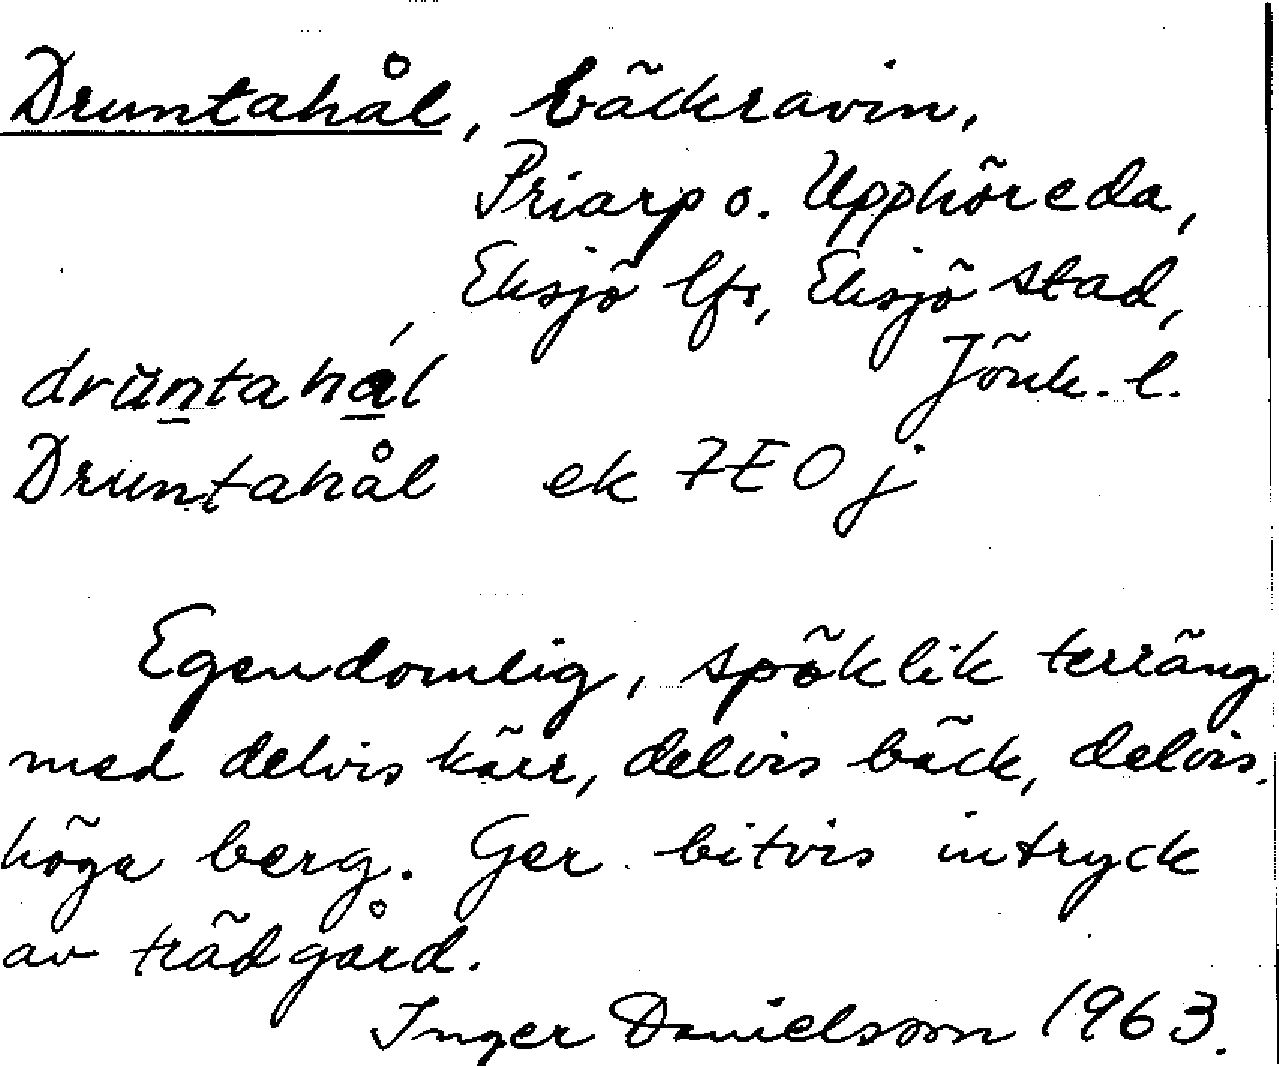 Druntahål, bäckravin,
Priarp o. Upphöreda,
Eksjö lfs, Eksjö stad,
Jönk. l.
drün̲tahá̲l
Druntahål ek 7E0j
Egendomlig, spöklik terräng
med delvis kärr, delvis bäck, delvis
höga berg. Ger bitvis intryck
av trädgård.
Inger Danielsson 1963.